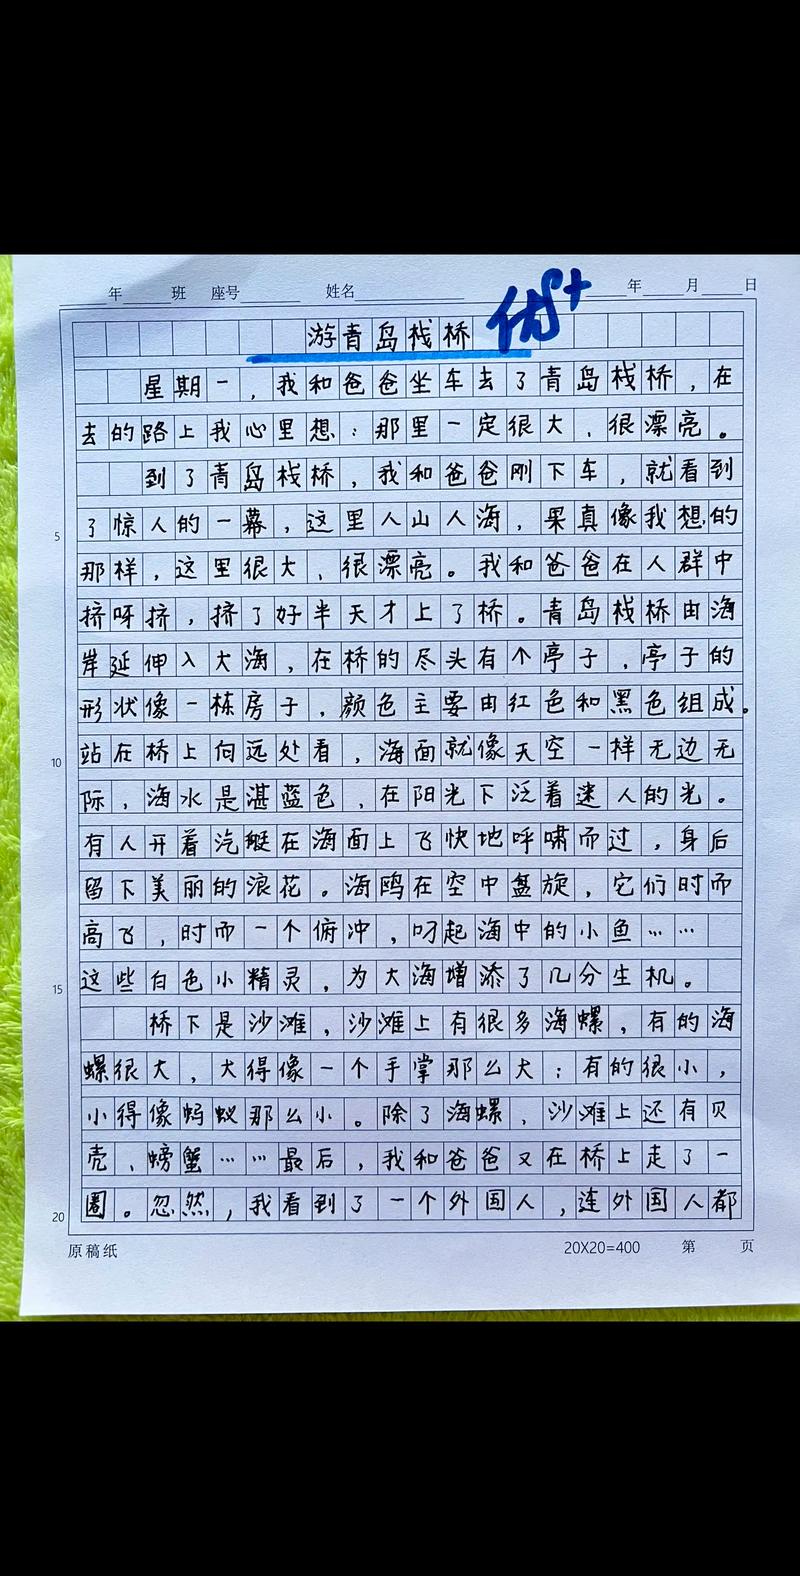 年 班 座号 姓名 年 月 日
优+
游青岛栈桥
星期一，我和爸爸坐车去了青岛栈桥，在
去的路上我心里想：那里一定很大、很漂亮。
到了青岛栈桥，我和爸爸刚下车，就看到
了惊人的一幕，这里人山人海，果真像我想的
5
那样，这里很大、很漂亮。我和爸爸在人群中
挤呀挤，挤了好半天才上了桥。青岛栈桥由海
岸延伸入大海，在桥的尽头有个亭子，亭子的
形状像一栋房子，颜色主要由红色和黑色组成。
站在桥上向远处看，海面就像天空一样无边无
10
际，海水是湛蓝色，在阳光下泛着迷人的光。
有人开着汽艇在海面上飞快地呼啸而过，身后
留下美丽的浪花。海鸥在空中盘旋，它们时而
高飞，时而一个俯冲，叼起海中的小鱼……
这些白色小精灵，为大海增添了几分生机。
15
桥下是沙滩，沙滩上有很多海螺，有的海
螺很大，大得像一个手掌那么大；有的很小，
小得像蚂蚁那么小。除了海螺，沙滩上还有贝
壳、螃蟹……最后，我和爸爸又在桥上走了一
圈。忽然，我看到了一个外国人，连外国人都
20
原稿纸 20X20=400 第 页